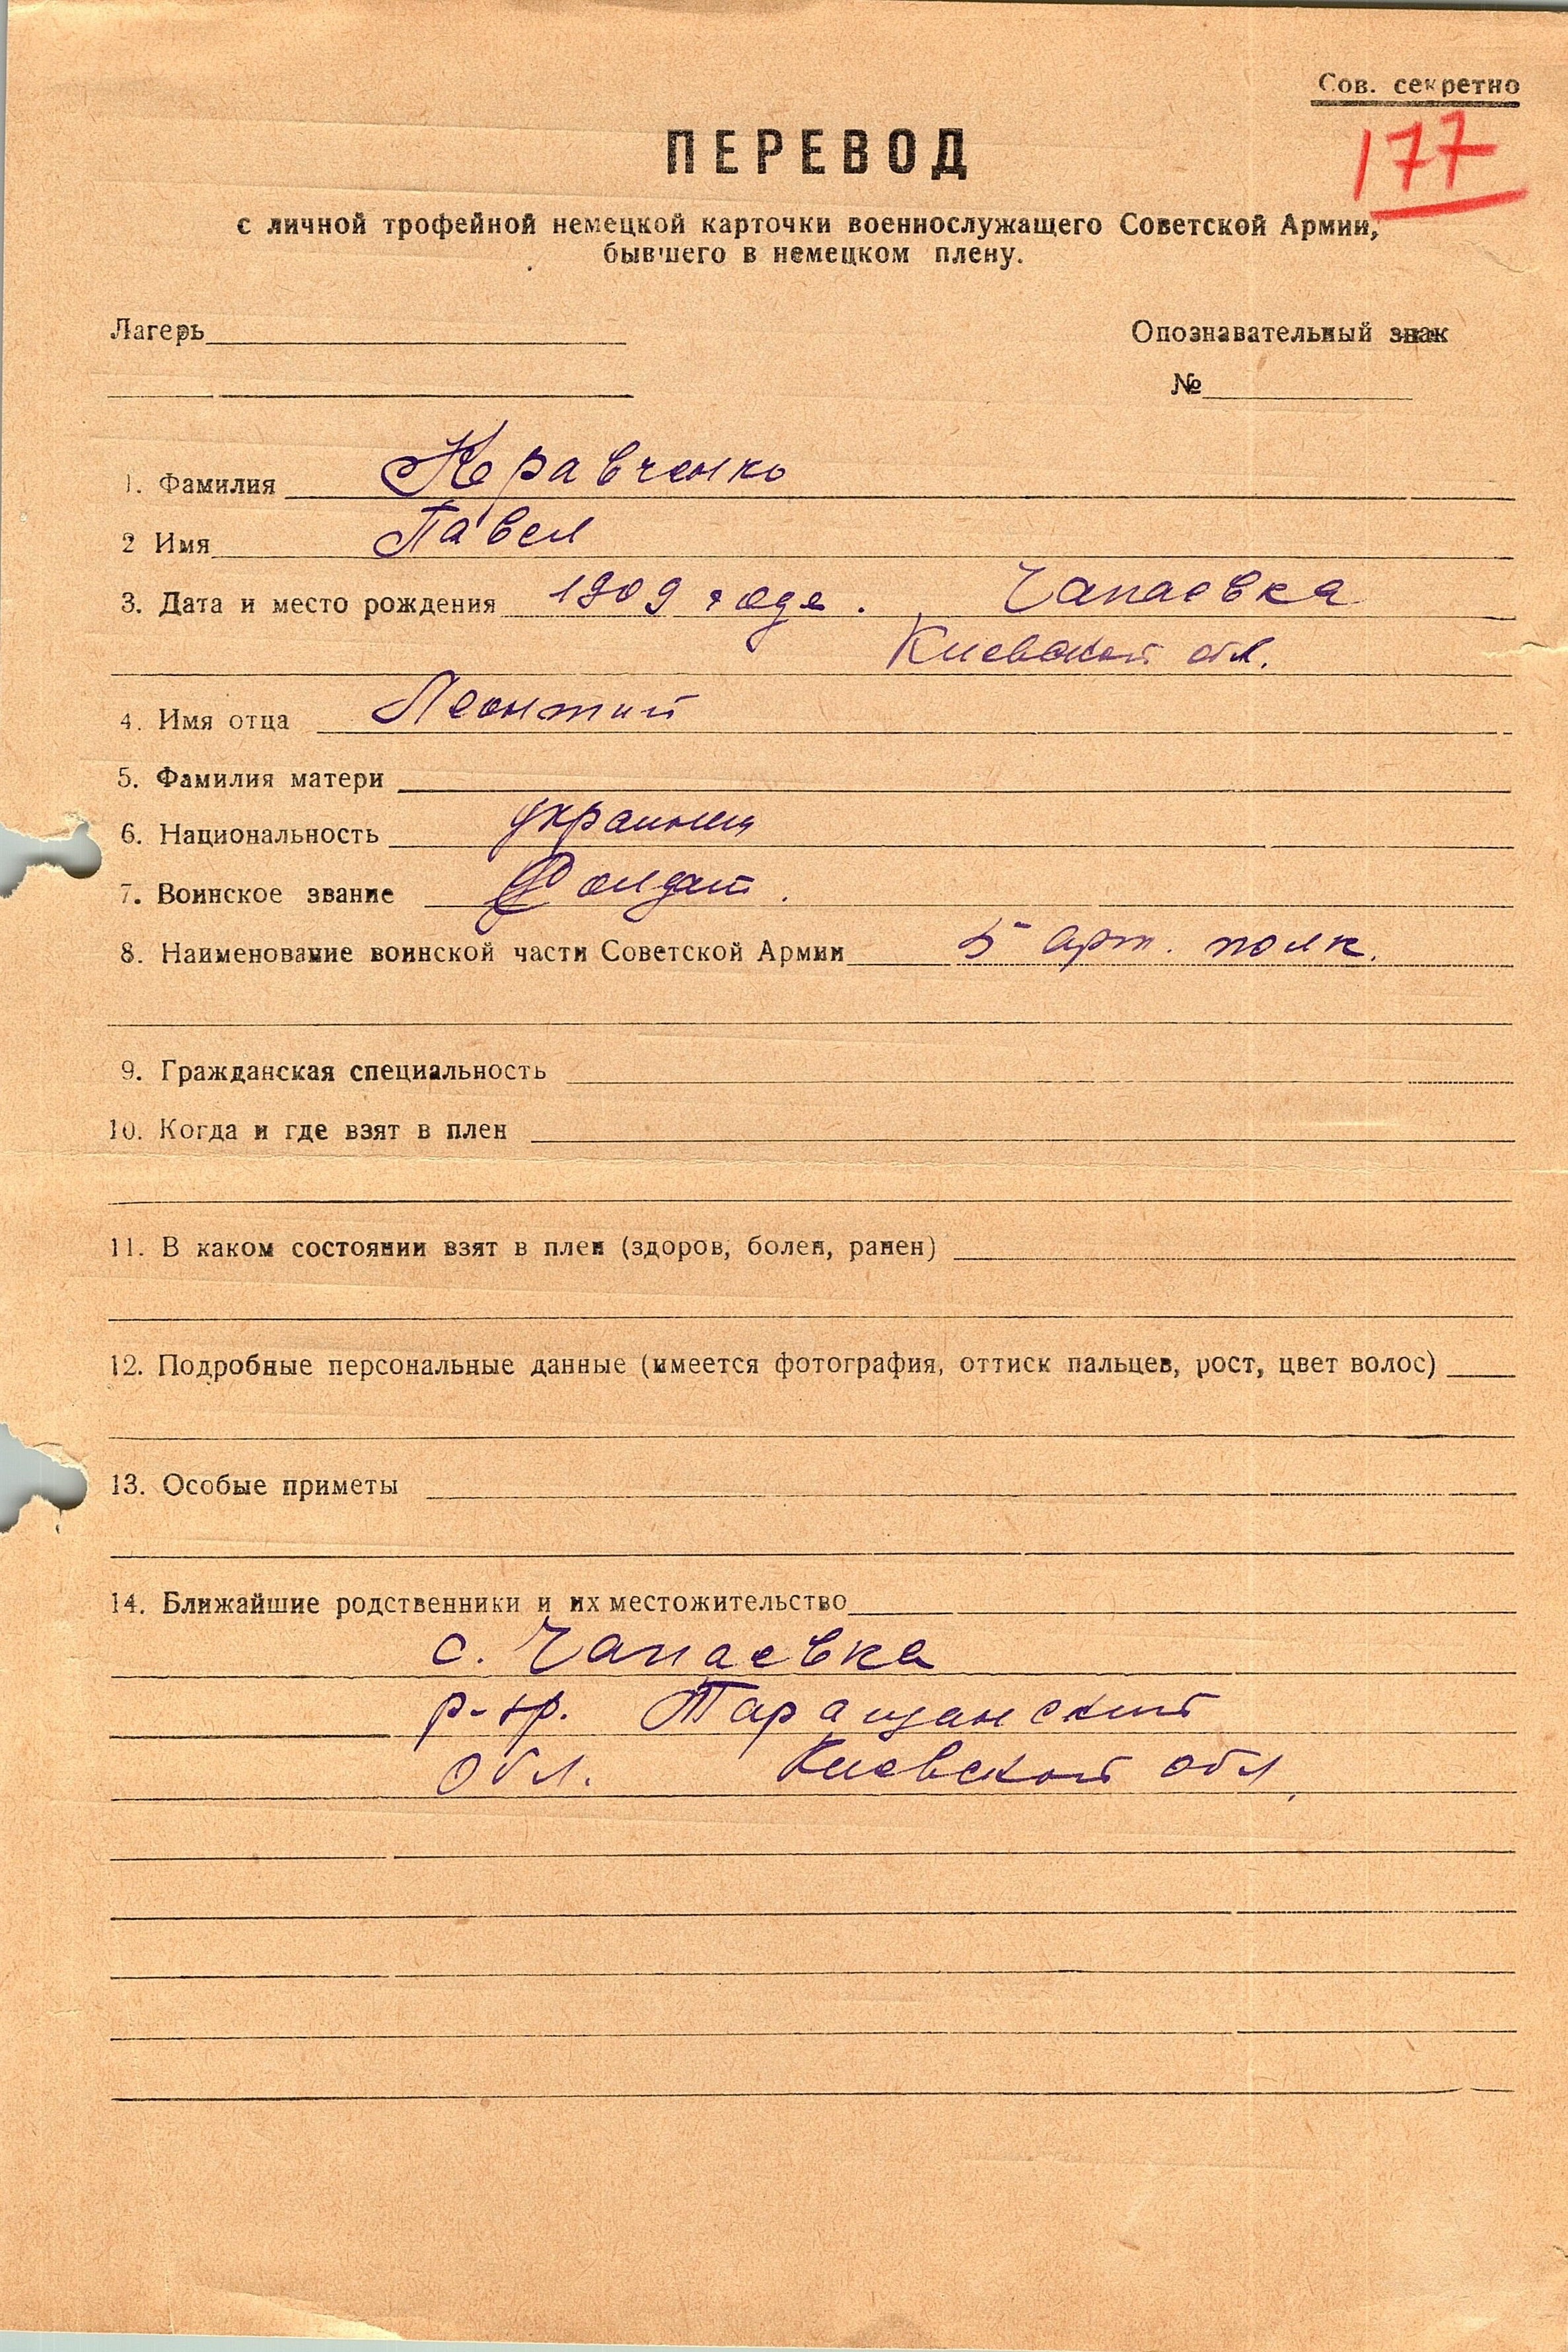 Сов. секретно
177
ПЕРЕВОД
с личной трофейной немецкой карточки военнослужащего Советской Армии,
бывшего в немецком плену.
Лагерь
Опознавательный знак
№
1. Фамилия Кравченко
2 Имя Павел
3. Дата и место рождения 1909 года. Чапаевка
Киевской обл.
4. Имя отца Леонтий
5. Фамилия матери
6. Национальность украинец
7. Воинское звание Солдат.
8. Наименование воинской части Советской Армии 5 арт. полк.
9. Гражданская специальность
10. Когда и где взят в плен
11. В каком состоянии взят в плен (здоров, болен, ранен)
12. Подробные персональные данные (имеется фотография, оттиск пальцев, рост, цвет волос)
13. Особые приметы
14. Ближайшие родственники и их местожительство
с. Чапаевка
Таращанский
обл. Киевской обл.